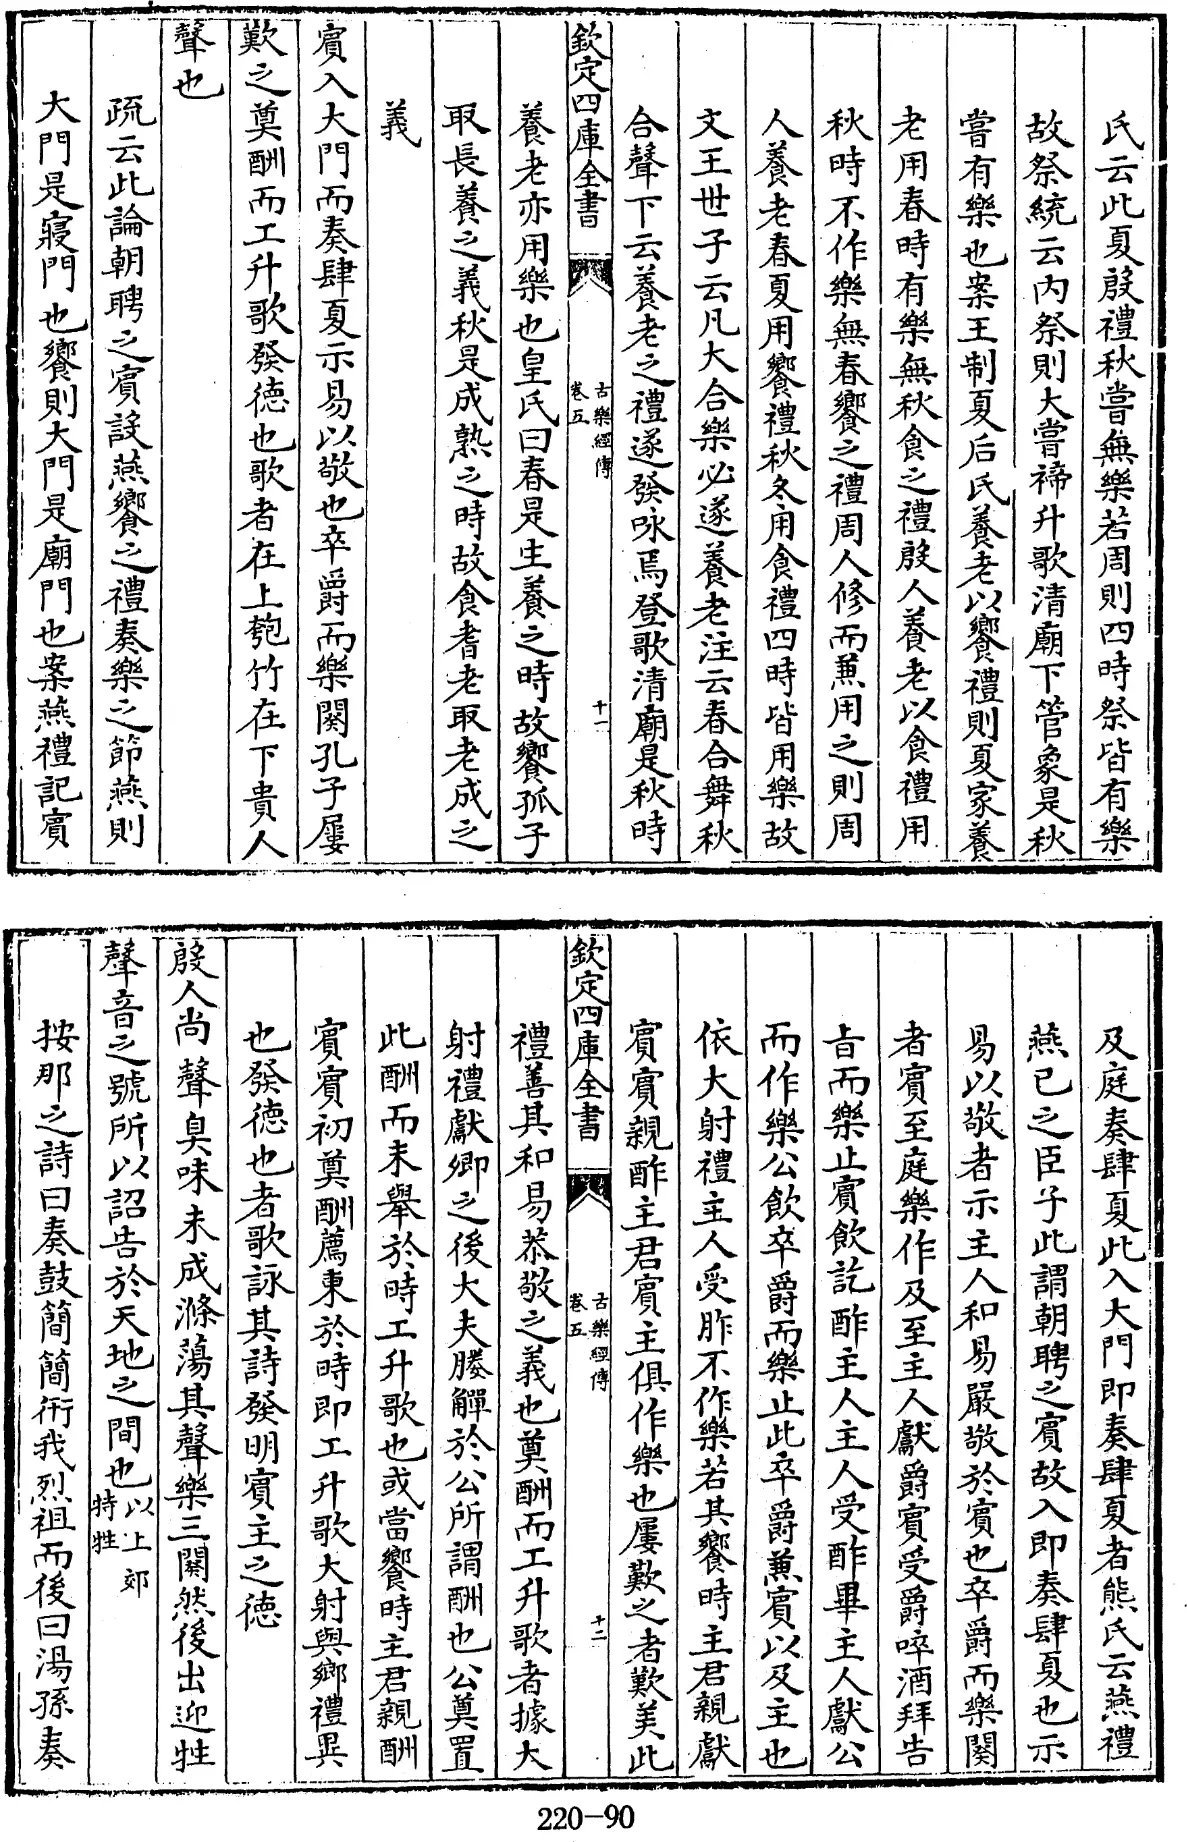 氏云此夏殷禮秋嘗無樂若周則四時祭皆有樂
故祭統云内祭則大嘗禘升歌清廟下管象是秋
嘗有樂也案王制夏后氏養老以饗禮則夏家養
老用春時有樂無秋食之禮殷人養老以食禮用
秋時不作樂無春饗之禮周人修而兼用之則周
人養老春夏用饗禮秋冬用食禮四時皆用樂故
文王世子云凡大合樂必遂養老注云春合舞秋
合聲下云養老之禮遂發咏焉登歌清廟是秋時
欽定四庫全書
古樂經傳
卷五
十一
養老亦用樂也皇氏曰春是生養之時故饗孤子
取長養之義秋是成熟之時故食耆老取老成之
義
賓入大門而奏肆夏示易以敬也卒爵而樂闋孔子屢
歎之奠酬而工升歌發德也歌者在上匏竹在下貴人
聲也
疏云此論朝聘之賓設燕饗之禮奏樂之節燕則
大門是寢門也饗則大門是廟門也案燕禮記賓
及庭奏肆夏此入大門即奏肆夏者熊氏云燕禮
燕已之臣子此謂朝聘之賓故入即奏肆夏也示
易以敬者示主人和易嚴敬於賓也卒爵而樂闋
者賓至庭樂作及至主人獻爵賓受爵啐酒拜告
旨而樂止賓飲訖酢主人主人受酢畢主人獻公
而作樂公飲卒爵而樂止此卒爵兼賓以及主也
依大射禮主人受胙不作樂若其饗時主君親獻
賓賓親酢主君賓主俱作樂也屢歎之者歎美此
欽定四庫全書
古樂經傳
卷五
十二
禮善其和易恭敬之義也奠酬而工升歌者據大
射禮獻卿之後大夫媵觶於公所謂酬也公奠置
此酬而未舉於時工升歌也或當饗時主君親酬
賓賓初奠酬薦東於時即工升歌大射與鄉禮異
也發德也者歌詠其詩發明賓主之德
殷人尚聲臭味未成滌蕩其聲樂三闋然後出迎牲
聲音之號所以詔告於天地之間也以上郊
特牲
按那之詩曰奏鼓簡簡衎我烈祖而後曰湯孫奏
220-90